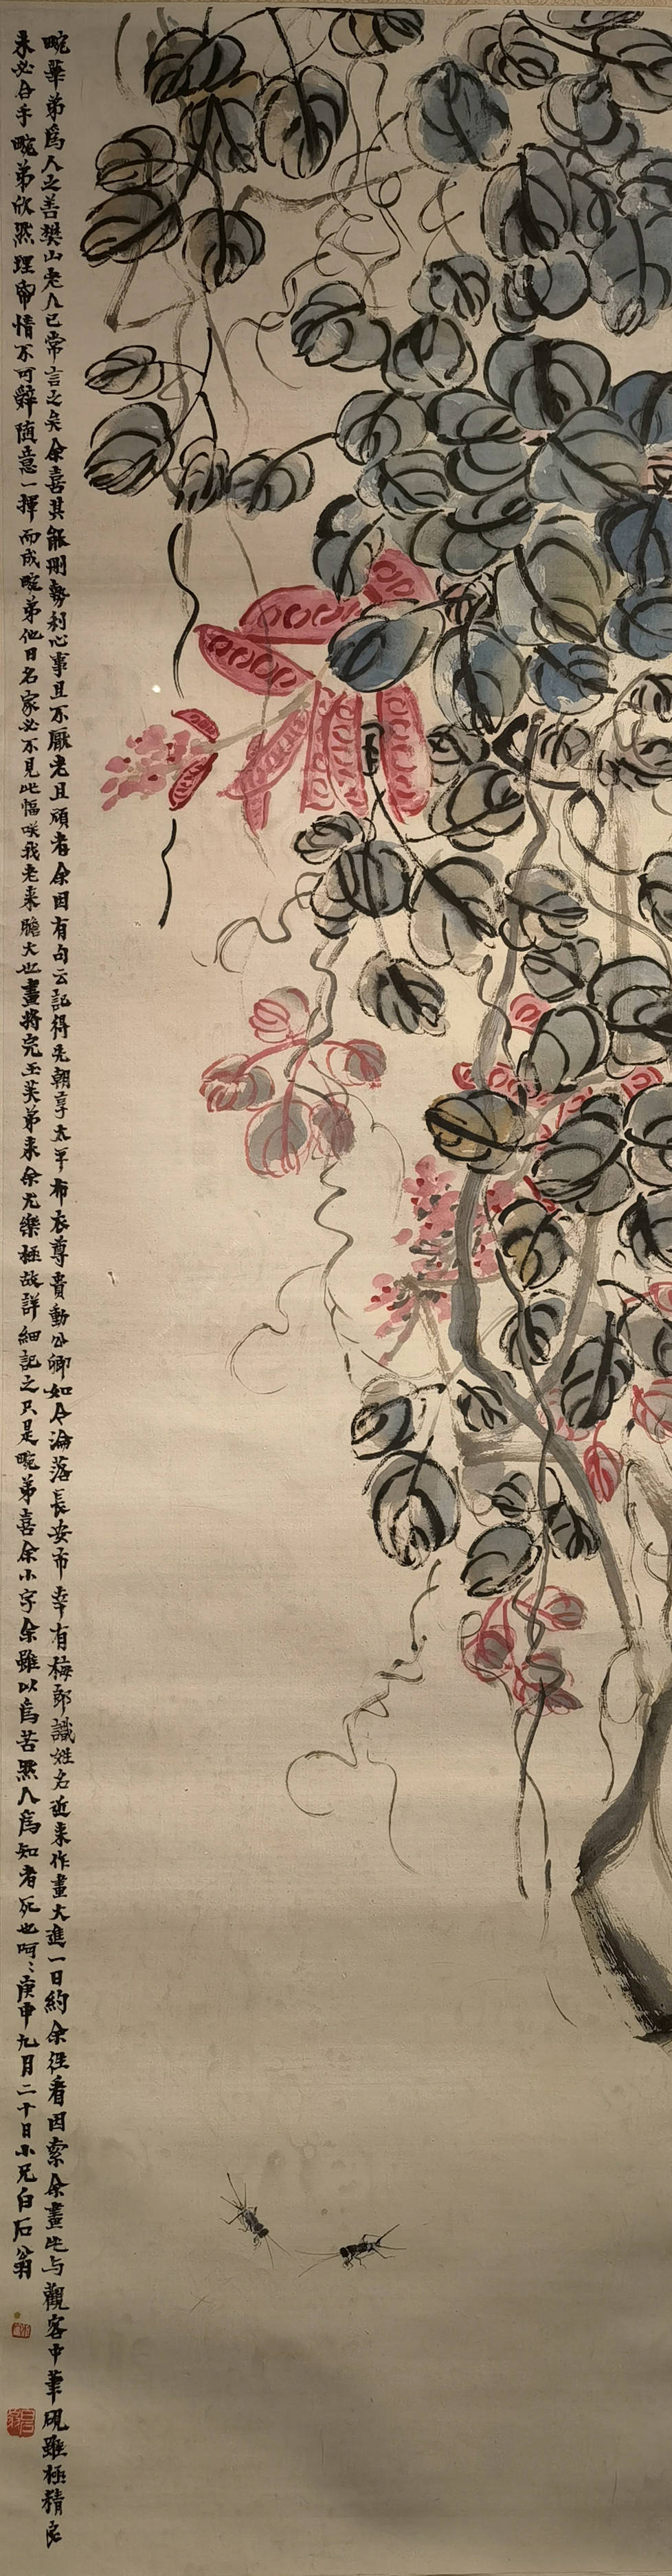 畹華弟為人之善樊山老人已常言之矣余喜其能刪勢利心事且不厭老且頑者余因有句云記得先朝享太平布衣尊貴動公卿如今淪落長安市幸有梅郎識姓名近來作畫大進一日約余徃看因索余畫此与觀客中筆硯雖極精良
未必合手畹弟欣然理帋情不可辭随意一揮而成畹弟他日名家必不見此幅咲我老來膽大也畫將完玉芙弟来余尤樂極故詳細記之只是畹弟喜余小字余雖以為苦然人為知者死也呵〻庚申九月二十日小兄白石翁